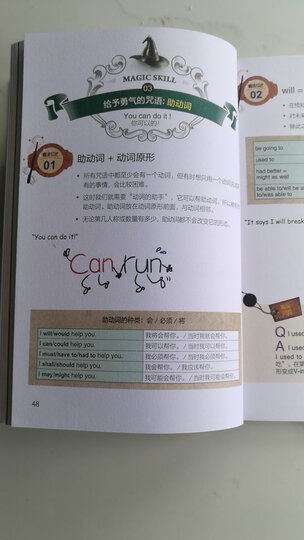 MAGIC SKILL
03
给予勇气的咒语: 助动词
You can do it !
你可以的！
01
助动词 + 动词原形
• 所有咒语中都至少会有一个动词，但有时想只用一个动词
有的事情，会比较困难。
• 这时我们就需要“动词的助手”，它可以帮助动词，
动词。助动词放在动词原形前面，与动词相邻。
• 无论第几人称或数量有多少，助动词都不会改变它的形态。
"You can do it!"
Can run
助动词的种类：会 / 必须 / 将
I will/would help you. 我将会帮你。/ 当时我就会帮你。
I can/could help you. 我可以帮你。/ 当时我可以帮你。
I must/have to/had to help you. 我必须帮你。/ 当时我必须帮你。
I shall/should help you. 我会帮你。/ 我应该帮你。
I may/might help you. 我可能会帮你。/ 当时我可能会帮你。
48
02
will =
• 在预
• 对未
be going to
used to
had better =
might as well
be able to/will be a
to/was able to
"It says I will break
Q I used
A I used
I used to
吃”，在第
形变成V-in